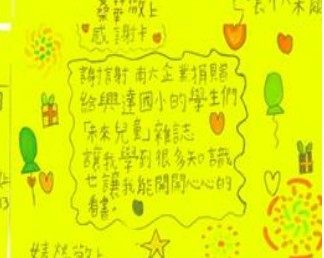 敬上
感謝卡
謝謝 南六企業捐贈
給興達國小的學生們
「未來兒童」雜誌
讓我學到很多知識
也讓我能開開心心的
看書。
敬上